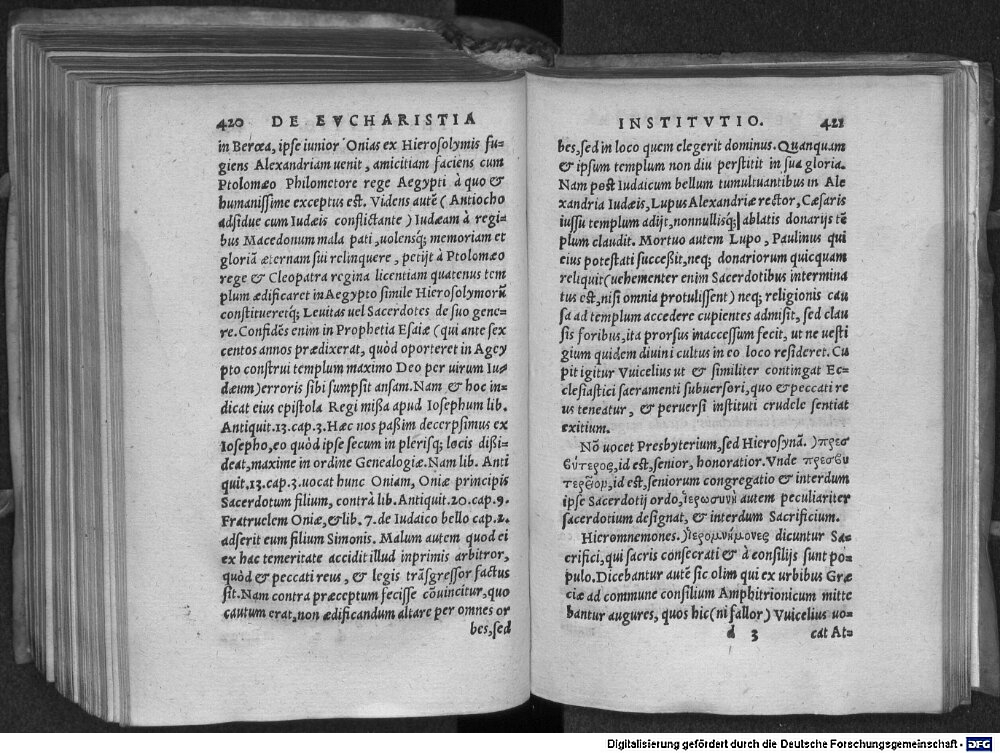 420 DE EVCHARISTIA
in Berœa, ipse iunior Onias ex Hierosolymis fu=
giens Alexandriam uenit, amicitiam faciens cum
Ptolomæo Philometore rege Aegypti à quo &
humanissime exceptus est. Videns autē (Antiocho
adsidue cum Iudæis conflictante) Iudæam à regi=
bus Macedonum mala pati, uolensq́; memoriam et
gloriā æternam sui relinquere, petijt à Ptolomæo
rege & Cleopatra regina licentiam quatenus tem
plum ædificaret in Aegypto simile Hierosolymorū
constitueretq́; Leuitas uel Sacerdotes de suo gene=
re. Confidēs enim in Prophetia Esaiæ (qui ante sex
centos annos prædixerat, quòd oporteret in Aegy
pto construi templum maximo Deo per uirum Iu=
dæum) erroris sibi sumpsit ansam. Nam & hoc in=
dicat eius epistola Regi missa apud Iosephum lib.
Antiquit.13.cap.3. Hæc nos passim decerpsimus ex
Iosepho, eo quòd ipse secum in plerisq; locis dissi=
deat, maxime in ordine Genealogiæ. Nam lib. Anti
quit.13.cap.3. uocat hunc Oniam, Oniæ principis
Sacerdotum filium, contrà lib. Antiquit.20.cap.9.
Fratruelem Oniæ, & lib. 7. de Iudaico bello cap.2.
adserit eum filium Simonis. Malum autem quod ei
ex hac temeritate accidit illud inprimis arbitror,
quòd & peccati reus, & legis trāsgressor factus
sit. Nam contra præceptum fecisse cōuincitur, quo
cautum erat, non ædificandum altare per omnes or
bes, sed
INSTITVTIO. 421
bes, sed in loco quem elegerit dominus. Quanquam
& ipsum templum non diu perstitit in sua gloria.
Nam post Iudaicum bellum tumultuantibus in Ale
xandria Iudæis, Lupus Alexandriæ rector, Cæsaris
iussu templum adijt, nonnullisq; ablatis donarijs tē
plum claudit. Mortuo autem Lupo, Paulinus qui
eius potestati successit, neq; donariorum quicquam
reliquit (uehementer enim Sacerdotibus intermina
tus est, nisi omnia protulissent) neq; religionis cau
sa ad templum accedere cupientes admisit, sed clau
sis foribus, ita prorsus inaccessum fecit, ut ne uesti
gium quidem diuini cultus in eo loco resideret. Cu
pit igitur Vuicelius ut & similiter contingat Ec=
clesiastici sacramenti subuersori, quo & peccati re
us teneatur, & peruersi instituti crudele sentiat
exitium.
Nō uocet Presbyterium, sed Hierosynā.) πρεσ
βύτερος, id est, senior, honoratior. Vnde πρεσβυ
τερῶομ, id est, seniorum congregatio & interdum
ipse Sacerdotij ordo, ἱερωσυνὴ autem peculiariter
sacerdotium designat, & interdum Sacrificium.
Hieromnemones.) ἱερομνήμονες dicuntur Sa=
crifici, qui sacris consecrati & à consilijs sunt po=
pulo. Dicebantur autē sic olim qui ex urbibus Græ
ciæ ad commune consilium Amphitrionicum mitte
bantur augures, quos hic (ni fallor) Vuicelius uo=
d 3 cat At=
Digitalisierung gefördert durch die Deutsche Forschungsgemeinschaft - DFG